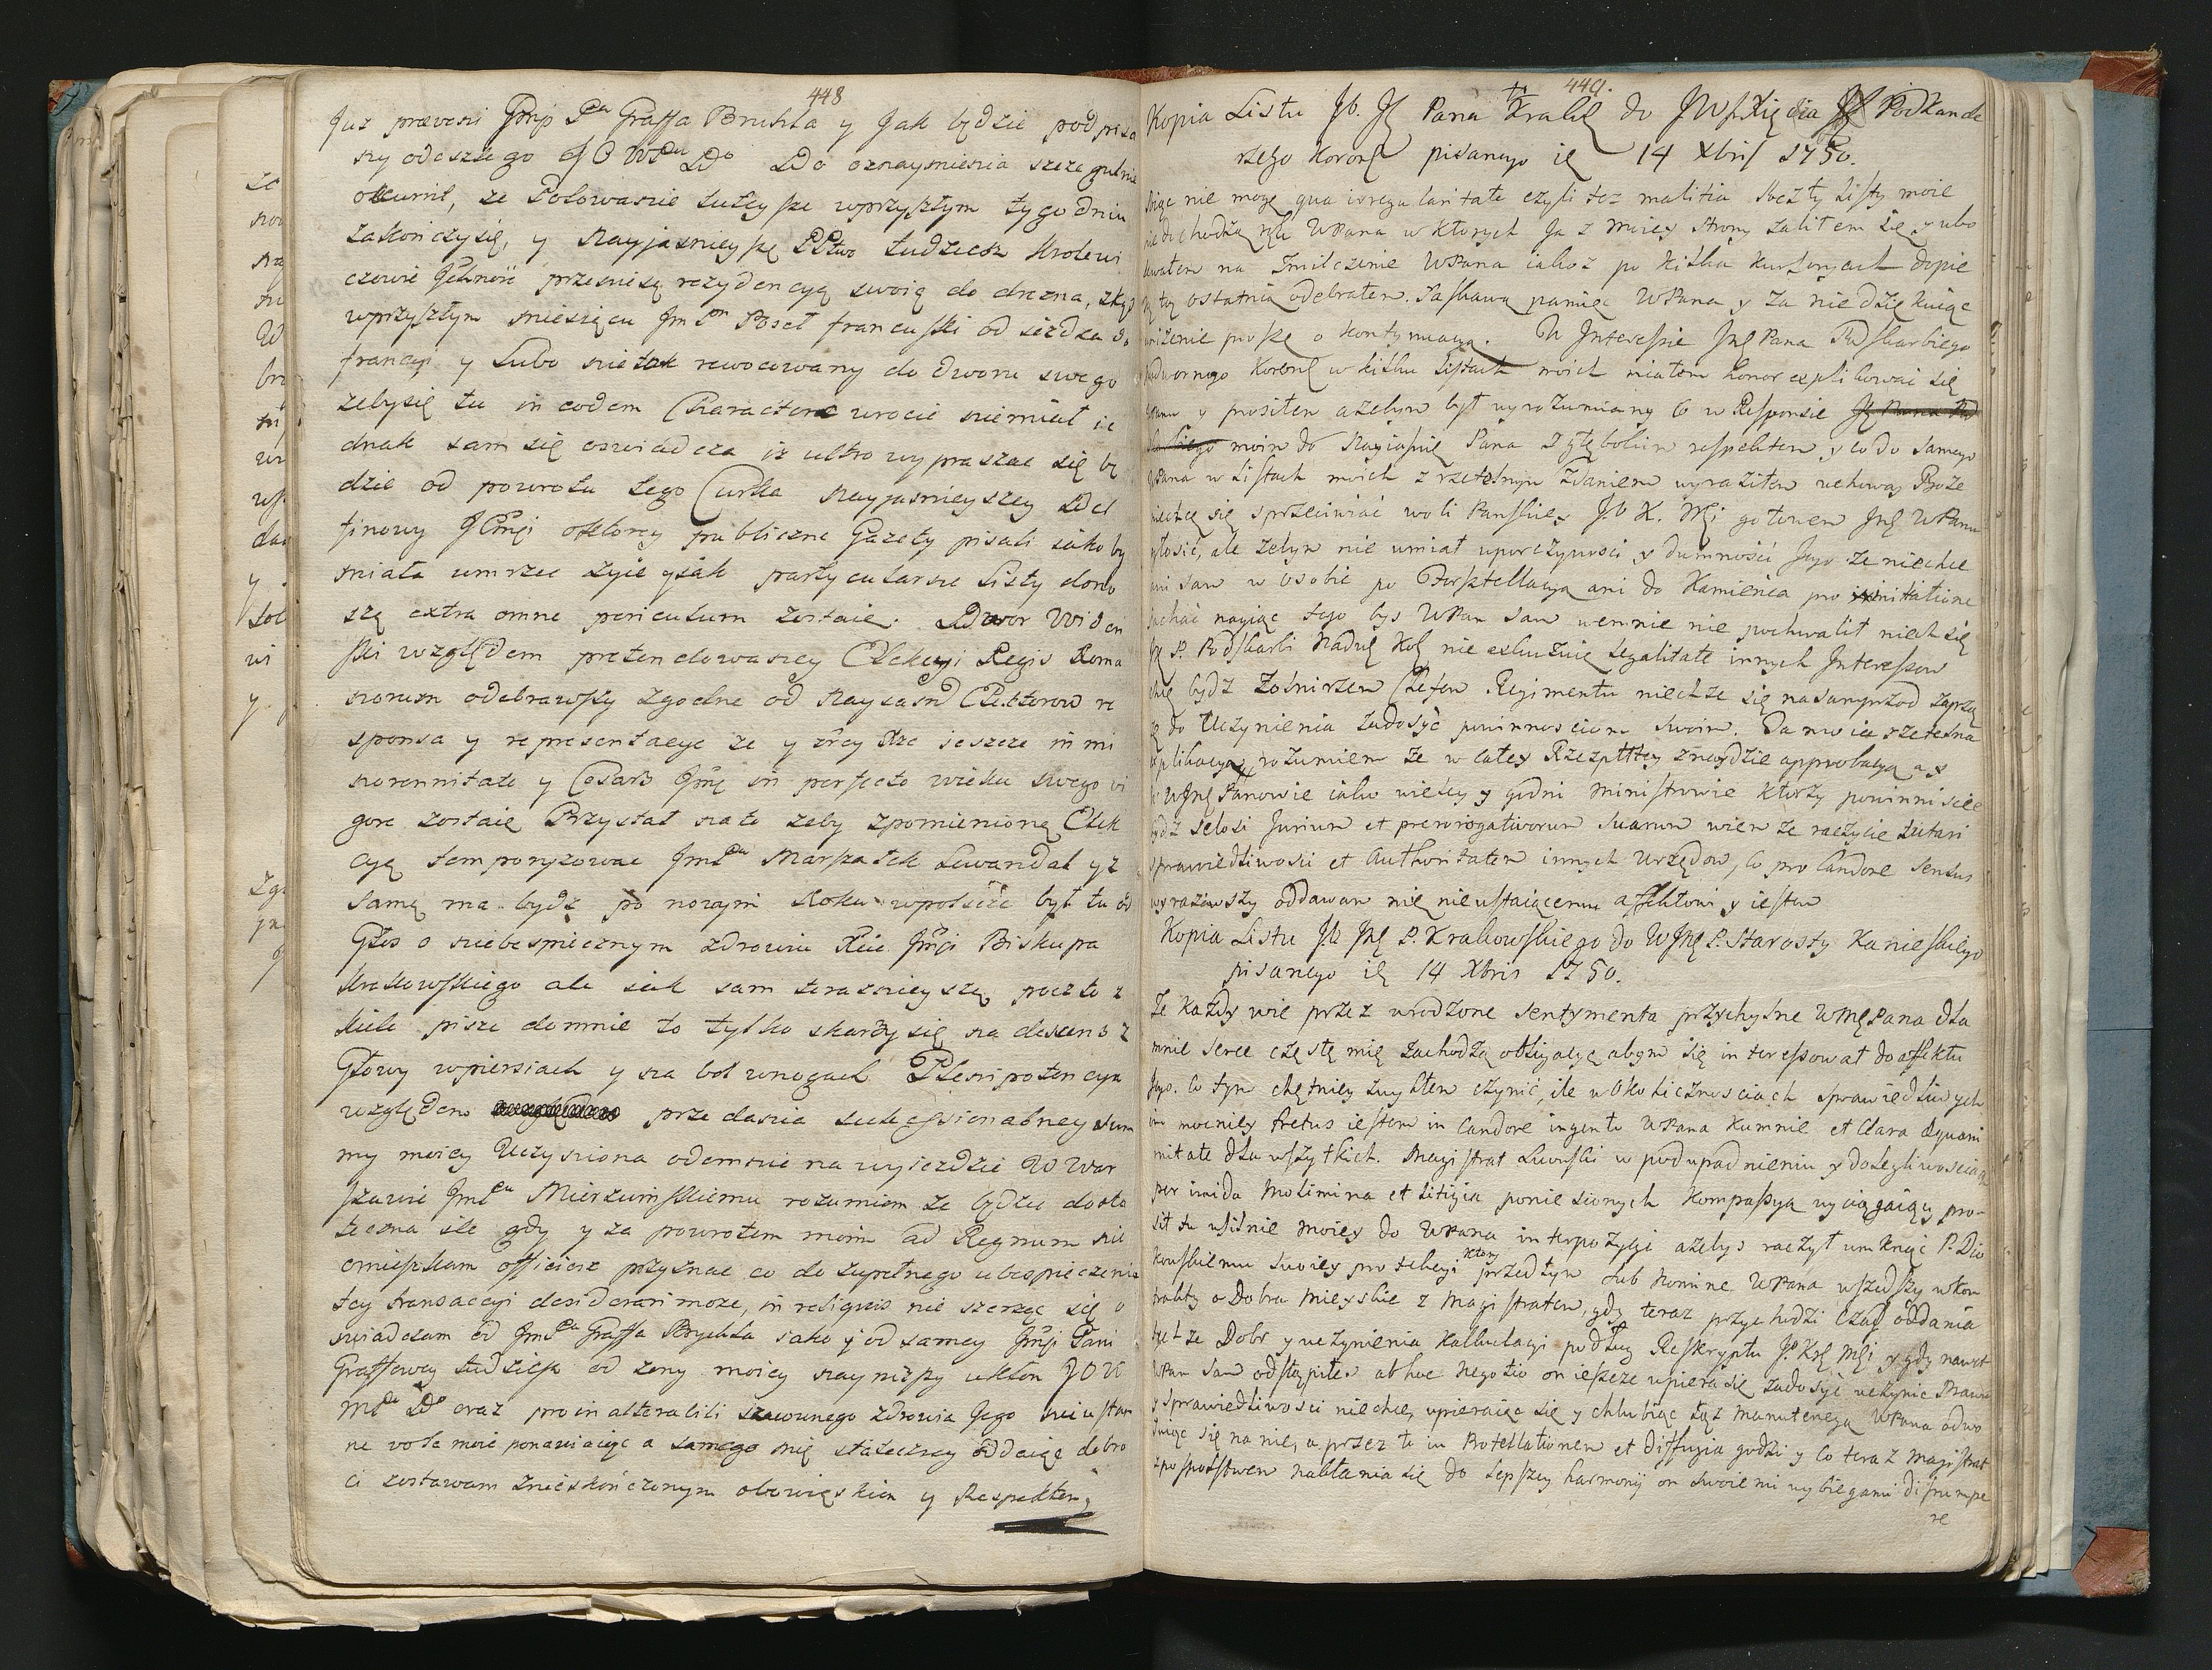 448
Juz prevenii Jmp Pa Graffa Bruhla y Jak będzie podpisa
ny odeszego JO WPDu DDo Do oznaymienia szczegulnie
okurrit, ze Polowanie tuteysze wprzyszłym tygodniu
zakończy się, y Nayjasnieysze PPtwo tudziesz Krolewi
czowie Jchmość przeniesą rezydencyą swoię do drezna, zkąd
wprzyszłym miesięcu JmPan Poseł francuski odjeżdza do
francyi y Lubo nietak rewocowany do dworu swego
zebysię tu in eodem Charactere wrocic niemiał ie
dnak sam się oswiadcza iz ultro wypraszac się bę
dzie od powrotu tego Curka Nayjasnieyszey Del
finowy JCMci oktorey publiczne Gazety pisali iakoby
miała umrzec zyie y jak partycularne Listy dono
szą extra omne periculum zostaie. Dwor Widen
ski względem pretendowaney Elekcyi Regis Roma
norum odebrawszy zgodne od Nayjasn Elektorow re
sponsa y reprezentacye ze y Arcy Xże jeszcze in mi
norennitate y Cesarz Jmć in perfecto wieku swego vi
gore zostaie Przystał nato zeby zpomienioną Elek
cyę temporyzowac JmPan Marszałek Lewandal yz
samą ma bydz po nowym Roku wpolszcze był tu od
Głos o niebespiecznym zdrowiu Xcia Jmci Biskupa
Krakowskiego ale iak sam terasnieyszą pocztą z
kielc pisze domnie to tylko skarzy się na descens z
Głowy wpiersiach y na bol wnogach. Plenipotencya
względem przedania sukcessionalney sum
my moiey Uczyniona odemnie na wyiezdzie W War
szawie JmPanu Mierzwinskiemu rozumiem ze będzie dosta
teczna ile gdy y za powrotem moim ad Regnum nie
omieszkam officiose przyznac co do zupełnego ubespieczenia
tey transakcyi desiderari moze, in reliquis nie szerząc się o
swiadczam od JmPana Graffa Brychla iako y od samey Jmci Pani
Graffowey tudziesz od zony moiey nayniższy ukłon JOW
MPa Do oraz pro inalterabili szacownego zdrowia Jego nieustan
ne vota moie ponawiaiąc a samego się stateczney oddaię dobro
ci zostawam znieskończonym obowiąskiem y Respektem
449.
Kopia Listu Jb. Ję Pana Krakę do JWJ Xięcia Podkancle
rzego Koronę pisanego ię 14 Xbris 1750.
nie mogę qua irregularitate czyli tez malitia poczty Listy moie
niedochodzą rąk WPana w ktorych Ja z moiey strony zaliłem się y ubo
lewałem na Zmilczenie WPana iakoz po kilka kursorych dopie
tę ostatnią odebrałem. Łaskawą pamięc WPana y za nie dziękuiąc
uniżenie proszę o kontynuacyą. W Interessie Jmę Pana Podskarbiego
nadwornego Koronę w kilku Listach moich miałem honor explikowac się
WPanu y prosiłem azebym był wyrozumiany co w Responsie
moim do Nayiasnię Pana z głębokim respektem, y co do samego
WPana w Listach moich z rzetelnym zdaniem wyraziłem uchoway Boże
niechcę się sprzeciwiać woli Panskiey J.K. Mci gotowem Jmę WPanu
głosić, ale zebym nie umiał uporczywosci y dumności Jego ze niechce
ani sam w osobie po Forsztellacyą ani do Kamienca pro initiatione
iechać nagiąc tego bys WPan sam wemnie nie pochwalił niech się
Ję P. Podskarbi Nadwę Kę nie exkuzuie legalitate innych Interessow
chcę bydz Zołnirzem Szefem Regimentu niechze się nasamprzod zaprzą
ze do Uczynienia zadosyć powinnosciom swoim. Ta moia rzetelna
explikacya rozumiem ze w całey Rzeczpltey znaydzie approbacyą a y
WJmę Panowie iako wielcy y godni Ministrowie ktorzy powinni scie
bydź zelosi Jurium et prerorogativorum suarum wiem ze raczycie łatari
sprawiedliwosci et Authoritatem innych Urzędow, co pro candore sensus
wyraziwszy oddawam się nieustaiącemu affektowi y iestem
Kopia Listu Jb Jmę P. Krakowskiego do WJmę P. Starosty Kaniewskiego
pisanego ię 14 Xbris 1750.
Ze każdy wie przez wrodzone sentymenta przychylne WMę Pana dla
mnie serce częste mię zachodzą obligacye abym się interessował do affektu
Jego. Co tym chętniey zwykłem czynić, ile w Okolicznosciach sprawiedliwych
im mocniey fretus iestem in candore ingenti WPana ku mnie et clara aequani
mitate dla wszytkich. Magistrat Lwowski w podupadnieniu y dolegliwosciach
per invida molimina et litigia poniesionych kompassyą wyciągaiący, pro-
sił tu usilnie moiey do WPana interpozycyi azebys raczył umknąć P. Dwo
kowskiemu swoiey protekcyi ktory przedtym sub nomine WPana wszedszy wkon
trakty o Dobra mieyskie z Magistratem, gdy teraz przychodzi czas oddania
tychze Dobr y uczynienia kalkulacyi podług Reskryptu Jº Krę Mci y gdy nawet
WPan sam odstąpiłes ab hoc negotio on ieszcze upiera się zadosyć uczynic Prawu
y sprawiedliwosci niechce, upieraiąc się y chlubiąc się z manutenezą WPana odwo
łuiąc się na nie, a przez to in Protestationem et diffugia godzi y co teraz magistrat
zpospolstwem nakłania się do lepszey harmonij on swoiemi wybiegami disrumpe
re